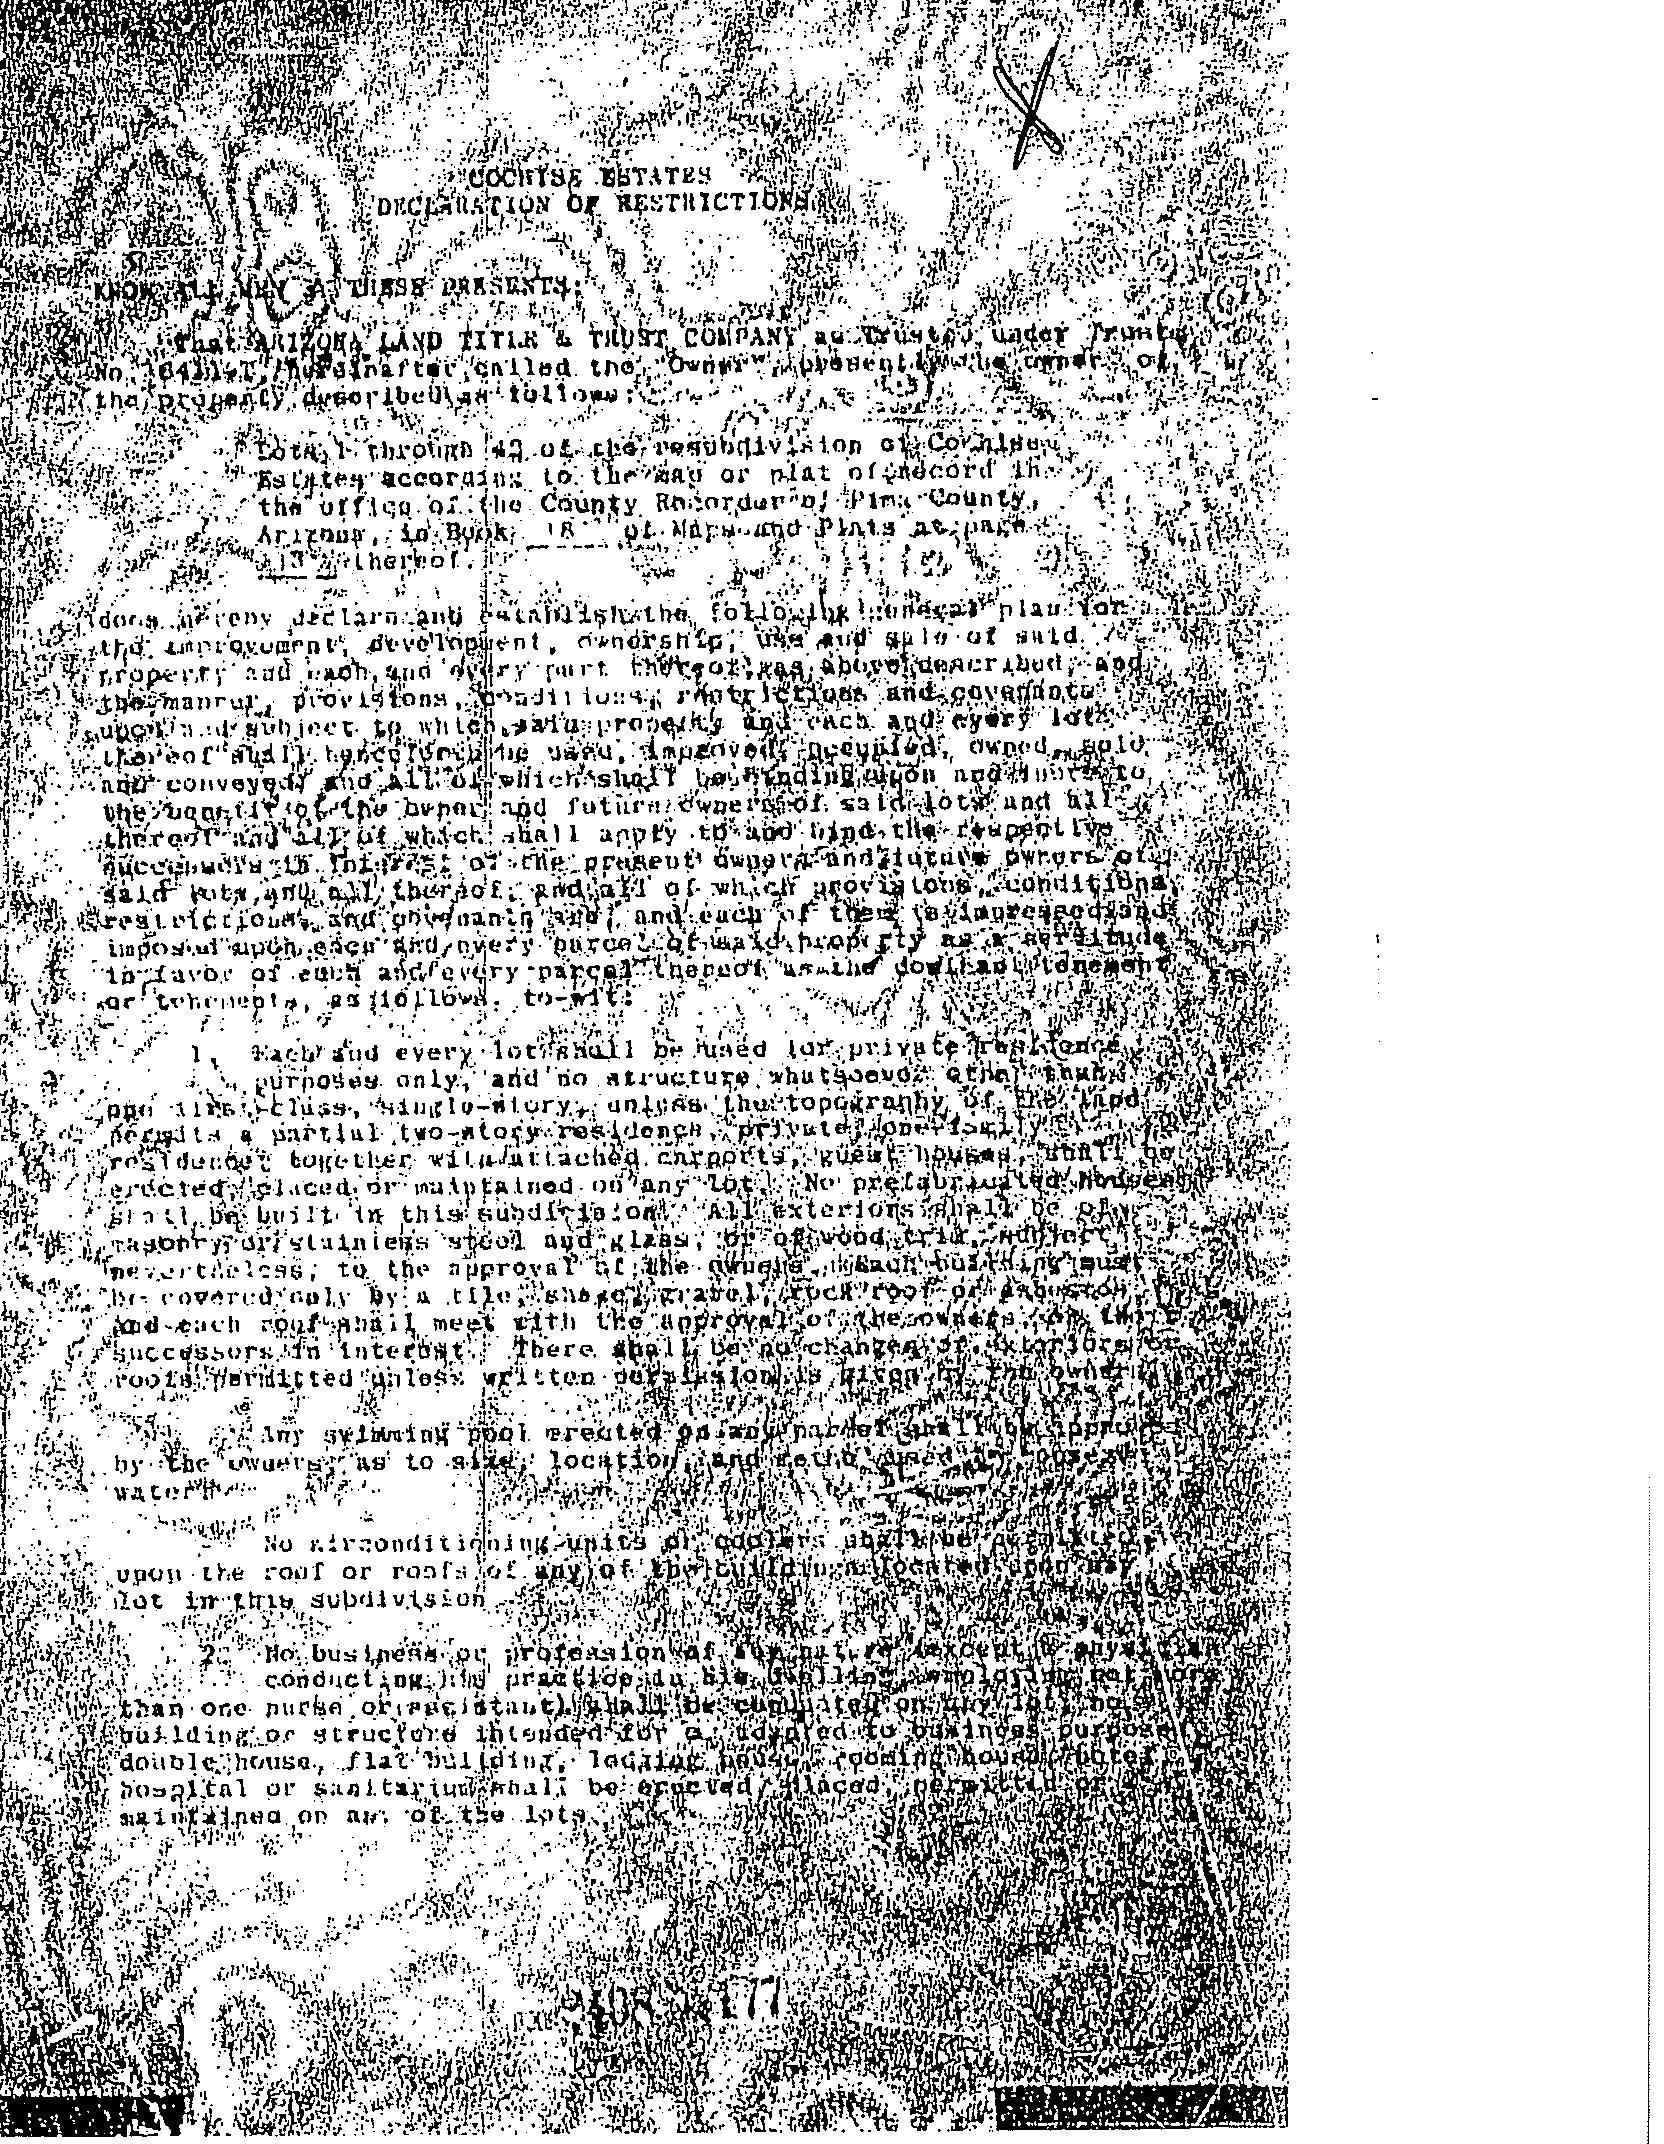 COCHISE ESTATES
DECLARATION OF RESTRICTIONS
KNOW ALL MEN THESE PRESENTS:
That ARIZONA LAND TITLE & TRUST COMPANY as Trustee under Trust
No. hereinafter called the "Owner", presently the owner of
the property described as follows:
Lots 1 through 42 of the resubdivision of Cochise
Estates according to the map or plat of record in
the office of the County Recorder of Pima County,
Arizona, in Book 18 of Maps and Plats at page
thereof.
does hereby declare and establish the following general plan for
the improvement, development, ownership, use and sale of said
property and each and every part thereof as above described, and
the manner, provisions, conditions, restrictions and covenants
upon and subject to which said property and each and every lot
thereof shall henceforth be used, improved, occupied, owned, sold
and conveyed, and all of which shall be binding upon and inure to
the benefit of the owner and future owners of said lots and all
thereof and all of which shall apply to and bind the respective
successors in interest of the present owners and future owners of
said lots and all thereof, and all of which provisions, conditions,
restrictions, and covenants and each of them is impressed and
imposed upon each and every parcel of said property as a servitude
in favor of each and every parcel thereof as the dominant tenement
or tenements, as follows, to-wit:
1. Each and every lot shall be used for private residence
purposes only, and no structure whatsoever other than
one first-class, single-story, unless the topography of the land
permits a partial two-story residence, private, one-family
residence, together with attached carports, guest houses, shall be
erected, placed or maintained on any lot. No prefabricated houses
shall be built in this subdivision. All exteriors shall be of
masonry or stainless steel and glass, or of wood trim, subject
nevertheless, to the approval of the owners. Each building must
be covered only by a tile, shake, gravel, rock roof or asbestos,
and each roof shall meet with the approval of the owners, or their
successors in interest. There shall be no changes of exteriors or
roofs permitted unless written permission is given by the owner
Any swimming pool erected on any parcel shall be approved
by the owners, as to size, location, and method used to
water.
No airconditioning units or coolers shall be permitted
upon the roof or roofs of any of the buildings located upon any
lot in this subdivision
2. No business or profession of any nature (except a physician
conducting his practice in his dwelling, employing not more
than one nurse or assistant) shall be conducted on any lot; no
building or structure intended for or adapted to business purposes,
double house, flat building, lodging house, rooming house, hotel,
hospital or sanitarium shall be erected, placed, permitted or
maintained on any of the lots.
177